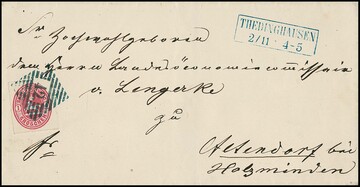 THEDINGHAUSEN
2/11 · 4-5
Sr Hochwohlgeboren
dem Herrn Landesöconomiecommissair
v. Lengerke
zu
fr.
Altendorf bei
Holzminden